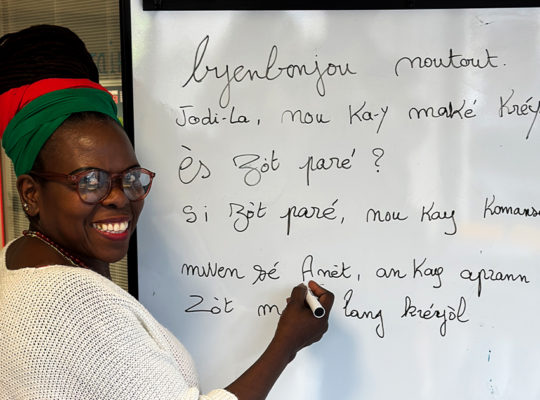 byenbonjou noutout.
Jodi-La, nou Ka-y maké
ès Zòt paré ?
si Zòt paré, nou Kay
mwen sé Anèt, an Kay aprann
Zòt lang kréyòl